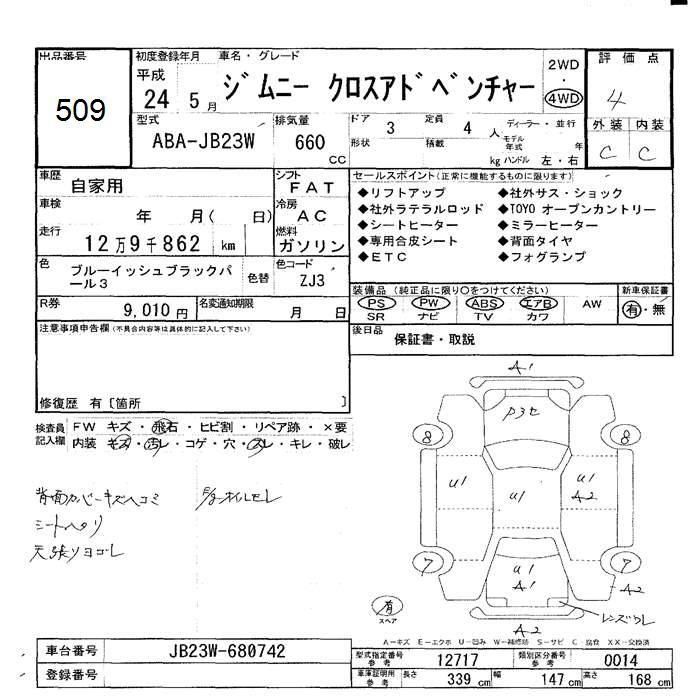 出品番号
509
初度登録年月
平成
24 5月
車名・グレード
ジムニー クロスアドベンチャー
2WD
・
4WD
評価点
4
外装 内装
C C
型式
ABA-JB23W
排気量
660
CC
ドア
3
定員
4 人
ディーラー・並行
形状
積載
kg
モデル年式 年
ハンドル 左・右
車歴
自家用
シフト
FAT
車検
年 月( 日)
冷房
AC
走行
12万9千862 km
燃料
ガソリン
色
ブルーイッシュブラックパール3
色替
色コード
ZJ3
R券
9,010円
名変通知期限
月 日
セールスポイント(正常に機能するものに限ります)
◆リフトアップ ◆社外サス・ショック
◆社外ラテラルロッド ◆TOYO オープンカントリー
◆シートヒーター ◆ミラーヒーター
◆専用合皮シート ◆背面タイヤ
◆ETC ◆フォグランプ
装備品 (純正品に限り○をつけてください)
PS PW ABS エアB AW
SR ナビ TV カワ
新車保証書
有・無
後日品
保証書・取説
注意事項申告欄(不具合内容等は具体的に記入して下さい)
修復歴 有〔箇所 〕
検査員記入欄
FW キズ・飛石・ヒビ割・リペア跡・×要
内装 キズ・汚レ・コゲ・穴・スレ・キレ・破レ
背面カバーキズヘコミ
シートヘタリ
天張りヨゴレ
A1
P3セ
8 8
U1 U1 U1
A2
7 7
U1
A1
A2
レンズワレ
A2
有
スペア
A-キズ E-エクボ U-凹み W-補修跡 S-サビ C-腐食 XX-交換済
車台番号
JB23W-680742
登録番号
型式指定番号 参考
12717
類別区分番号 参考
0014
車庫証明用 参考
長さ 339 cm
幅 147 cm
高さ 168 cm